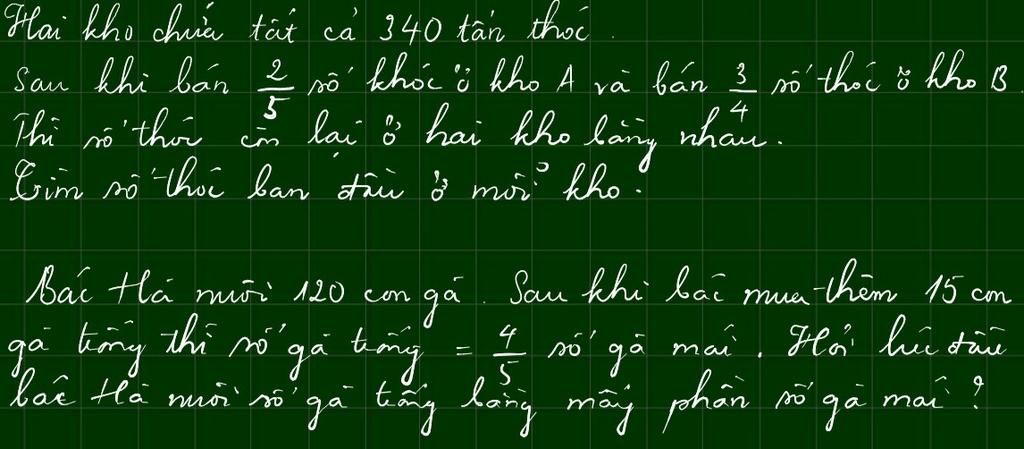 Hai kho chứa tất cả 340 tấn thóc.
Sau khi bán 2/5 số khóc ở kho A và bán 3/4 số thóc ở kho B.
Thì số thóc còn lại ở hai kho bằng nhau.
Tìm số thóc ban đầu ở mỗi kho.
Bác Hà nuôi 120 con gà. Sau khi bác mua thêm 15 con
gà trống thì số gà trống = 4/5 số gà mái. Hỏi lúc đầu
bác Hà nuôi số gà trống bằng mấy phần số gà mái?